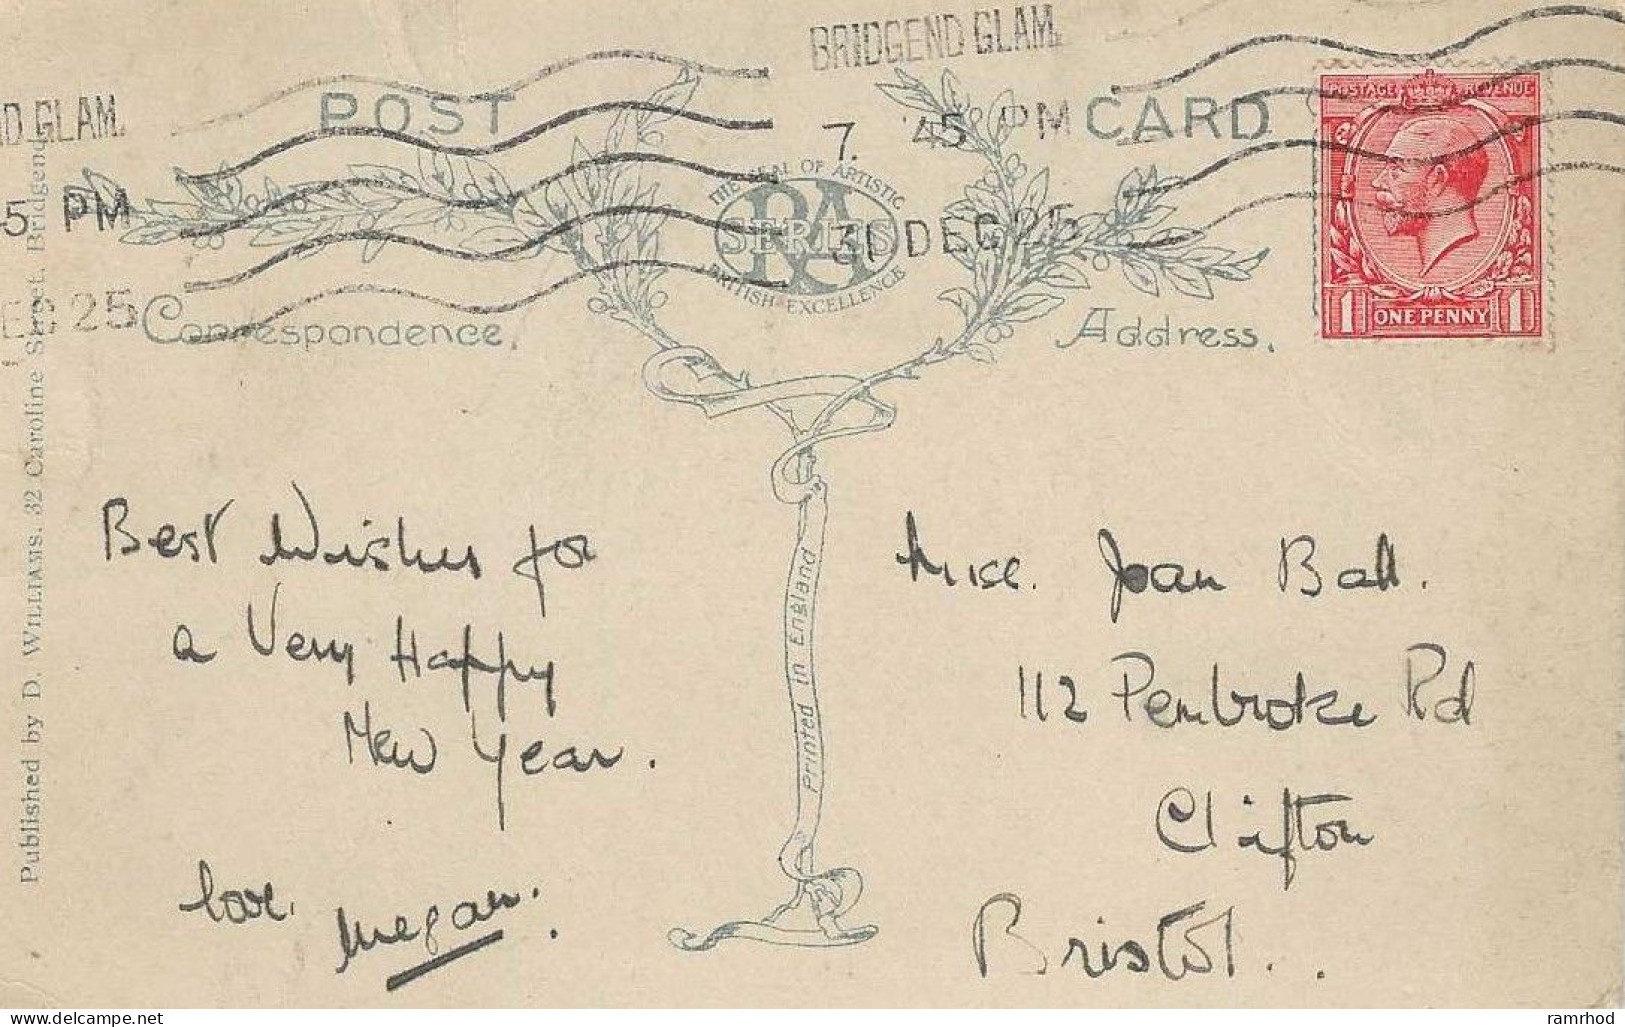 BRIDGEND GLAM.
ND GLAM.
POST CARD
7.45 PM
5 PM
31 DEC 25
25
POSTAGE REVENUE
1 ONE PENNY 1
THE SEAL OF ARTISTIC
RA SERIES
BRITISH EXCELLENCE
Correspondence.
Address.
Published by D. WILLIAMS, 32 Caroline Street, Bridgend
Printed in England
Best Wishes for
a Very Happy
New Year.
love.
Megan.
Miss. Joan Ball.
112 Pembroke Rd
Clifton
Bristol..
ramrhod
delcampe.net